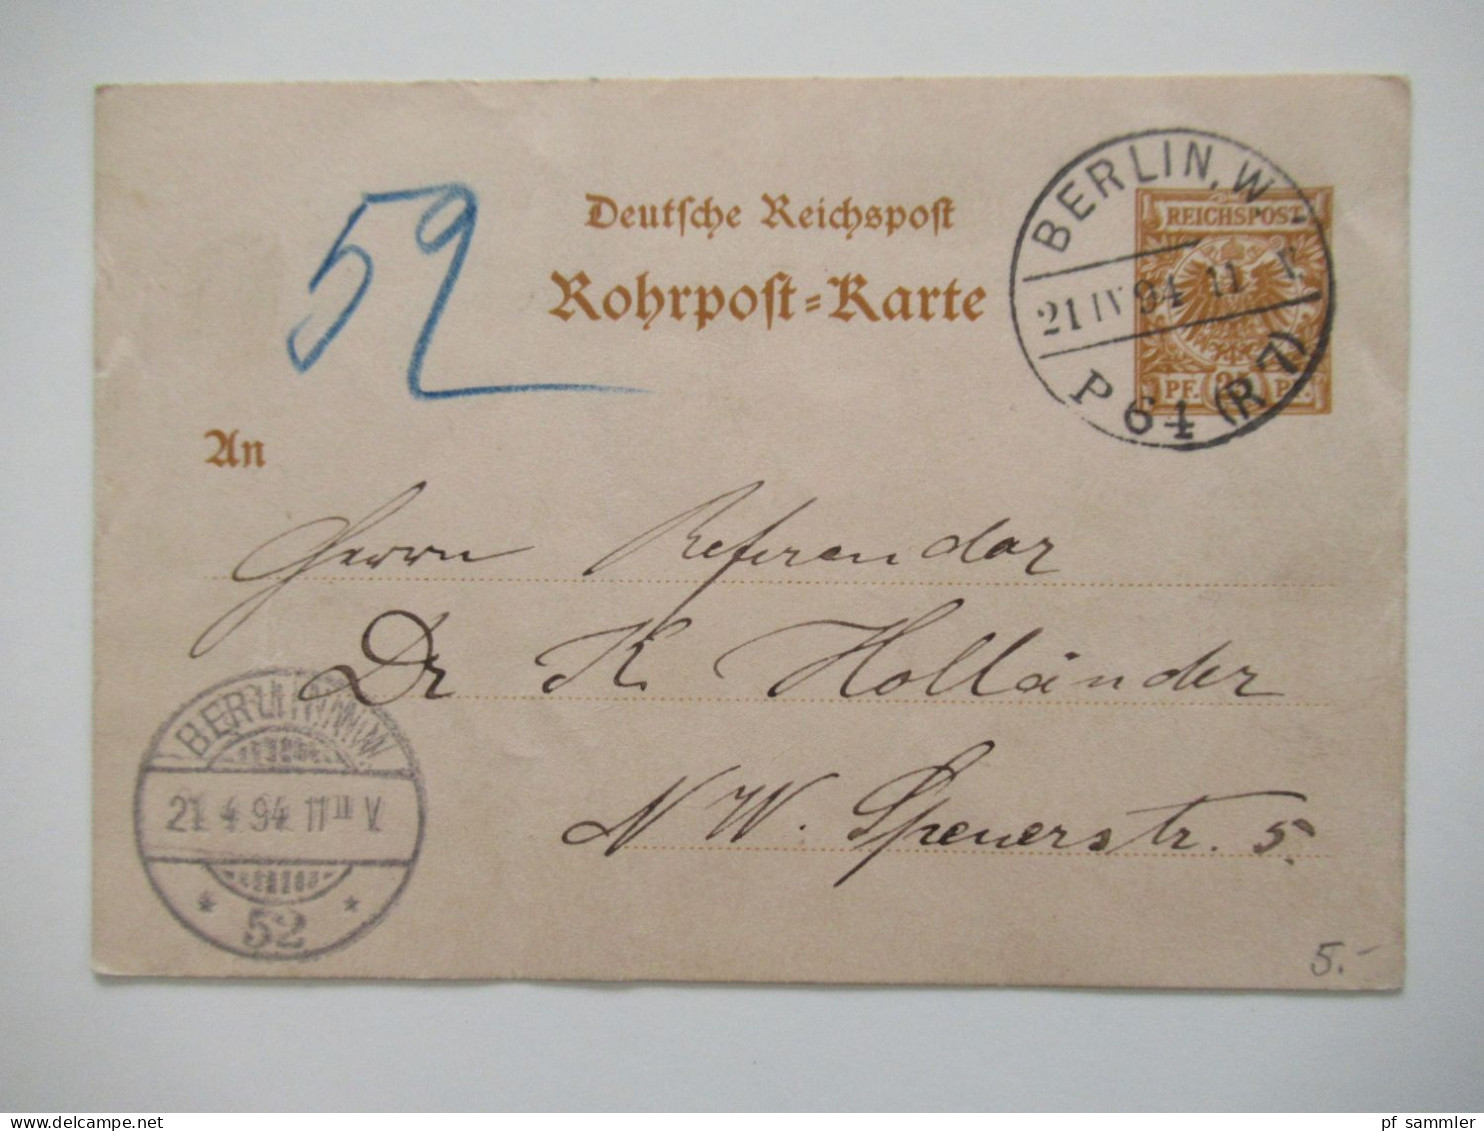 52
Deutsche Reichspost
Rohrpost-Karte
BERLIN, W
21 IV 94 11
P 64 (R 7)
REICHSPOST
PF. PF.
An
Herrn Referendar
Dr K Holländer
N W. Spenerstr. 5.
BERLIN NW
21 4 94 11 V
* 52 *
5.-
pf_sammler
www.delcampe.net